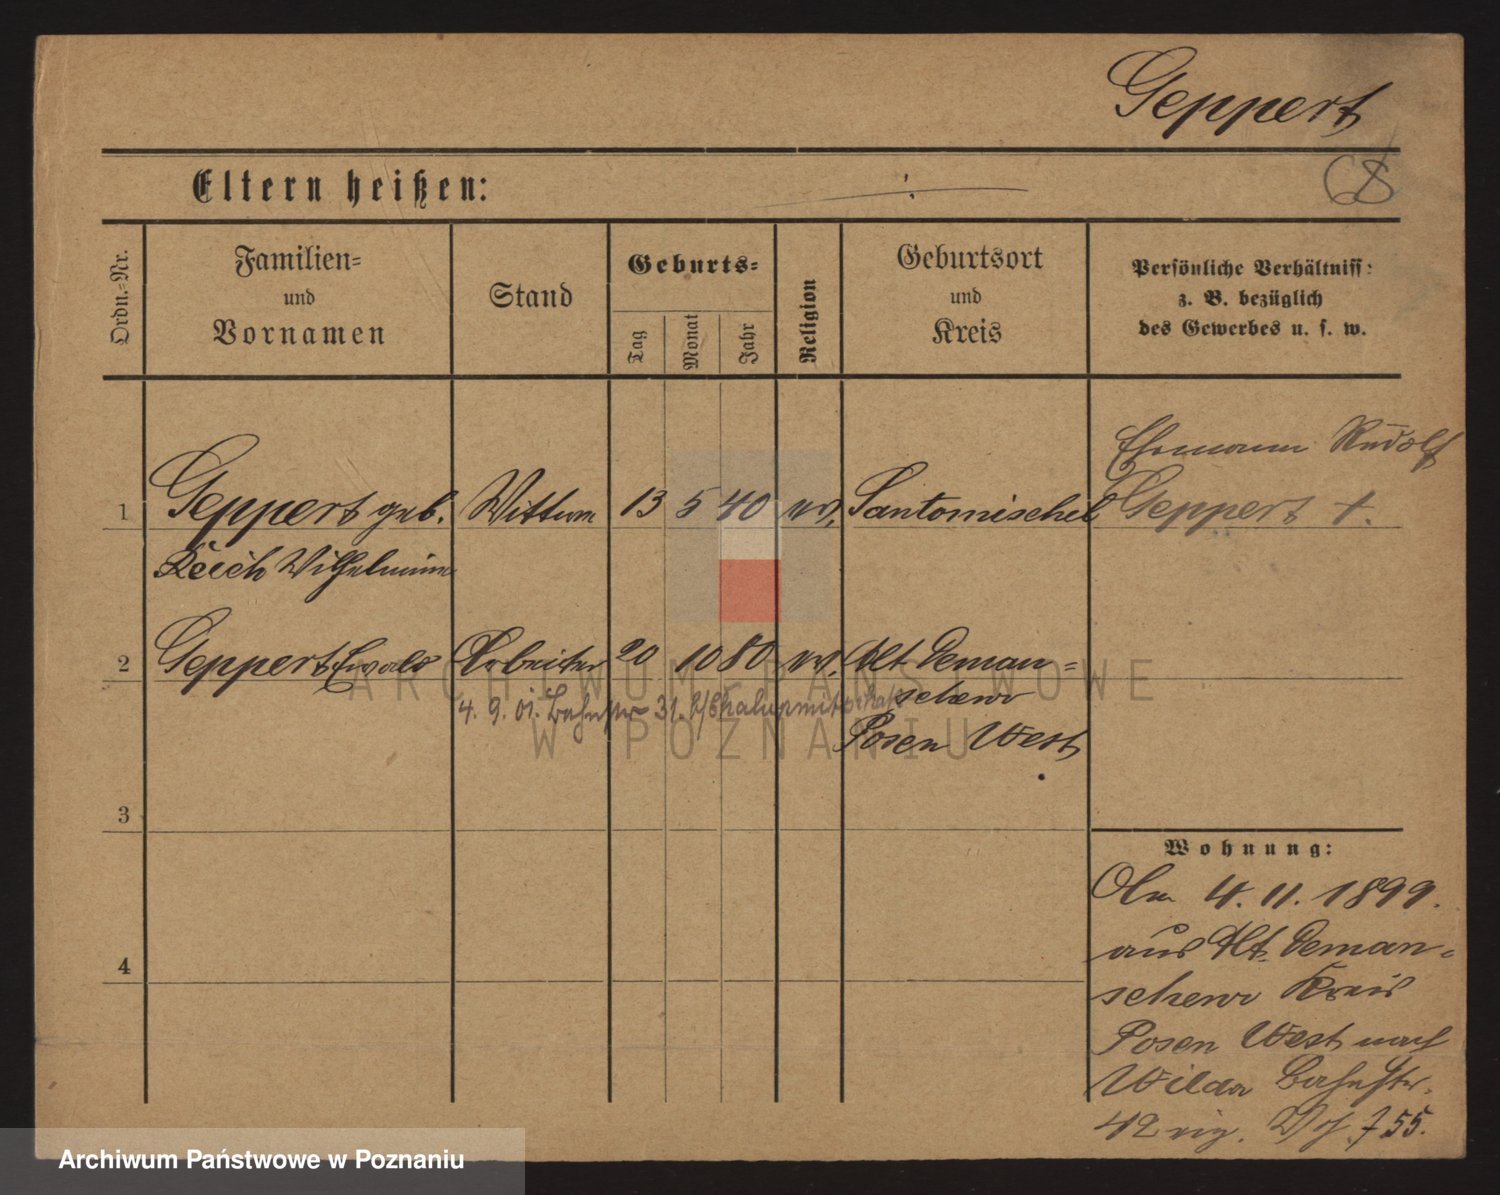 Geppert
Eltern heißen:
Ordn.-Nr.
Familien-
und
Vornamen
Stand
Geburts-
Tag
Monat
Jahr
Religion
Geburtsort
und
Kreis
Persönliche Verhältniss:
z. B. bezüglich
des Gewerbes u. s. w.
Ehemann Rudolf
1 Geppert geb. Wittwe 13 5 40 ev. Santomischel Geppert †.
Reich Wilhelmine
2 Geppert Ewald Arbeiter 20 10 80 ev. Alt Deman=
4. 9. 01. Bahnstr 31.
schewo
Posen West
3
4
Wohnung:
Am 4. 11. 1899.
aus Alt Deman=
schewo Kreis
Posen West nach
Wilda Bahnstr.
42 755.
ARCHIWUM PAŃSTWOWE
W POZNANIU
Archiwum Państwowe w Poznaniu